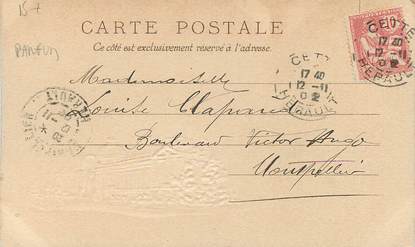 15-
PARFUM
CARTE POSTALE
Ce côté est exclusivement réservé à l'adresse.
Mademoiselle
Louise
Boulevard Victor Hugo
Montpellier
CETTE
17 40
12 -11
02
HERAULT
CETTE
17 40
12 -11
02
HERAULT
HERAULT